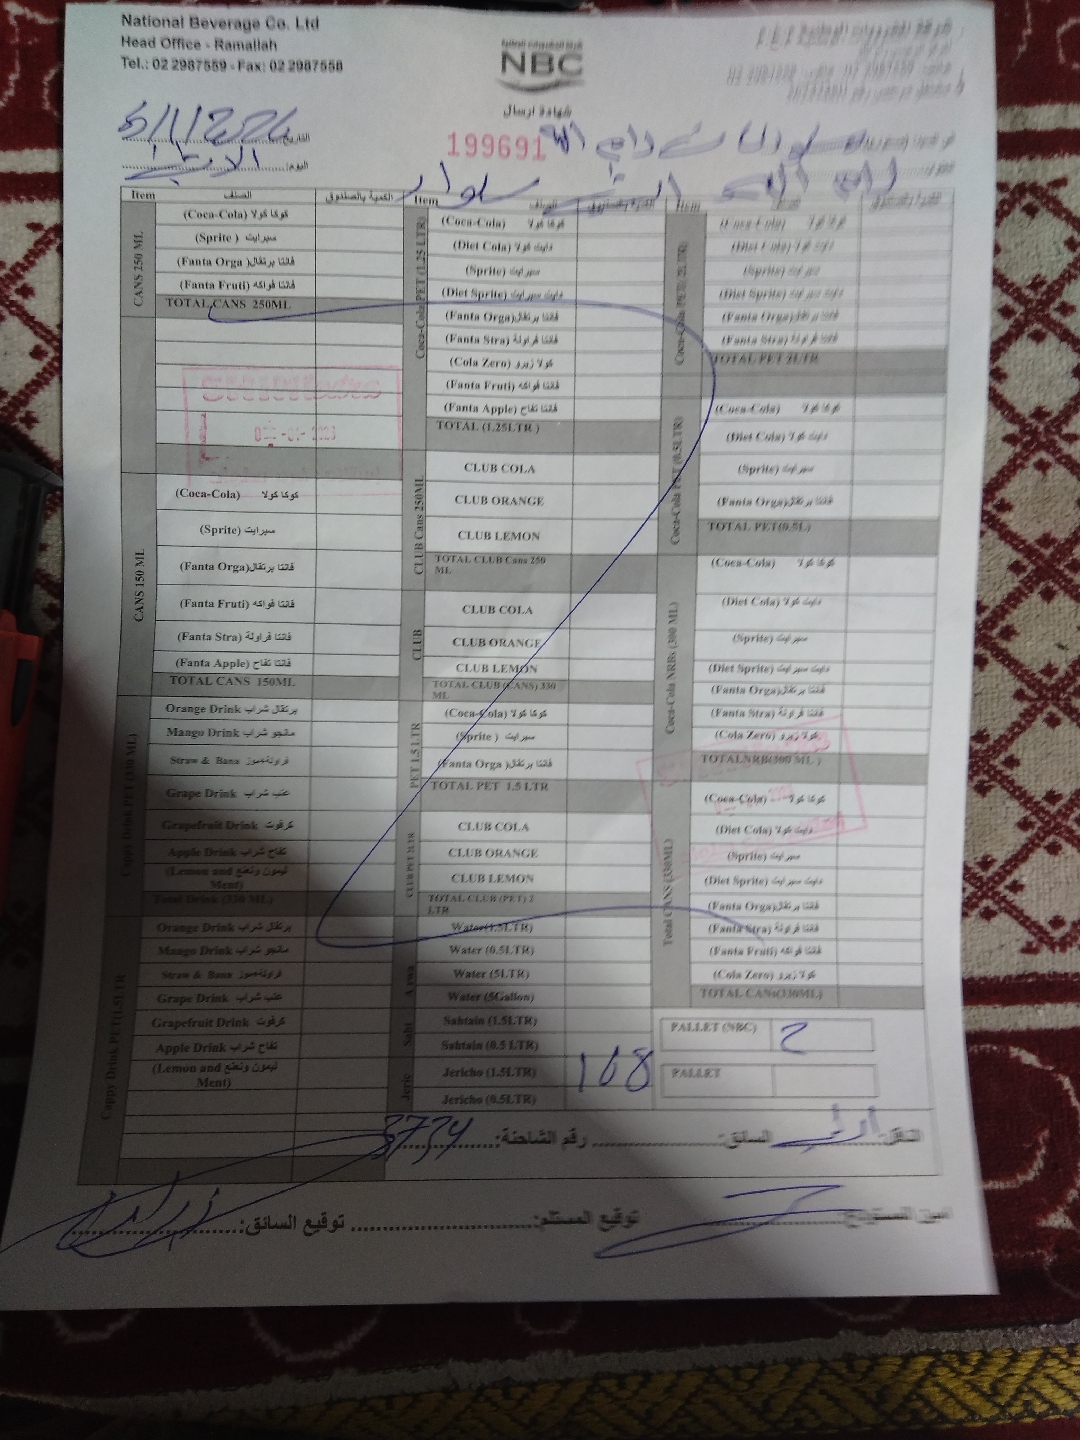 National Beverage Co. Ltd
Head Office - Ramallah
Tel.: 02 2987559 - Fax: 02 2987558
NBC
شهادة ارسال
199691
التاريخ:
اليوم:
Item الصنف الكمية بالصندوق
CANS 250 ML
(Coca-Cola) كوكا كولا
(Sprite ) سبرايت
(Fanta Orga) فانتا برتقال
(Fanta Fruti) فانتا فواكه
TOTAL CANS 250ML
CANS 150 ML
(Coca-Cola) كوكا كولا
(Sprite) سبرايت
(Fanta Orga) فانتا برتقال
(Fanta Fruti) فانتا فواكه
(Fanta Stra) فانتا فراولة
(Fanta Apple) فانتا تفاح
TOTAL CANS 150ML
Cappy Drink PET (330 ML)
Orange Drink برتقال شراب
Mango Drink مانجو شراب
Straw & Bana فراولة+موز
Grape Drink عنب شراب
Grapefruit Drink كرفوت
Apple Drink تفاح شراب
(Lemon and Ment) ليمون ونعنع
Total Drink (330 ML)
Cappy Drink PET(1.5LTR
Orange Drink برتقال شراب
Mango Drink مانجو شراب
Straw & Bana فراولة+موز
Grape Drink عنب شراب
Grapefruit Drink كرفوت
Apple Drink تفاح شراب
(Lemon and Ment) ليمون ونعنع
Item
Coca-Cola PET (1.25 LTR)
(Coca-Cola) كوكا كولا
(Diet Cola) دايت كولا
(Sprite) سبرايت
(Diet Sprite) دايت سبرايت
(Fanta Orga) فانتا برتقال
(Fanta Stra) فانتا فراولة
(Cola Zero) كولا زيرو
(Fanta Fruti) فانتا فواكه
(Fanta Apple) فانتا تفاح
TOTAL (1.25LTR )
CLUB Cans 250ML
CLUB COLA
CLUB ORANGE
CLUB LEMON
TOTAL CLUB Cans 250 ML
CLUB
CLUB COLA
CLUB ORANGE
CLUB LEMON
TOTAL CLUB (CANS) 330 ML
PET 1.5 LTR
(Coca-Cola) كوكا كولا
(Sprite ) سبرايت
(Fanta Orga) فانتا برتقال
TOTAL PET 1.5 LTR
CLUB PET 2LTR
CLUB COLA
CLUB ORANGE
CLUB LEMON
TOTAL CLUB (PET) 2 LTR
Water(1.5LTR)
Water (0.5LTR)
Water (5LTR)
Water (5Gallon)
Saht
Sahtain (1.5LTR)
Sahtain (0.5 LTR)
Jeric
Jericho (1.5LTR)
168
Jericho (0.5LTR)
Item
(Coca-Cola) كوكا كولا
(Diet Cola) دايت كولا
(Sprite) سبرايت
(Diet Sprite) دايت سبرايت
(Fanta Orga) فانتا برتقال
(Fanta Stra) فانتا فراولة
TOTAL PET 2LTR
Coca-Cola PET (0.5LTR)
(Coca-Cola) كوكا كولا
(Diet Cola) دايت كولا
(Sprite) سبرايت
(Fanta Orga) فانتا برتقال
TOTAL PET(0.5L)
Coca-Cola NRBs (300 ML)
(Coca-Cola) كوكا كولا
(Diet Cola) دايت كولا
(Sprite) سبرايت
(Diet Sprite) دايت سبرايت
(Fanta Orga) فانتا برتقال
(Fanta Stra) فانتا فراولة
(Cola Zero) كولا زيرو
TOTALNRB(300 ML )
Total CANS (330ML)
(Coca-Cola) كوكا كولا
(Diet Cola) دايت كولا
(Sprite) سبرايت
(Diet Sprite) دايت سبرايت
(Fanta Orga) فانتا برتقال
(Fanta Stra) فانتا فراولة
(Fanta Fruti) فانتا فواكه
(Cola Zero) كولا زيرو
TOTAL CANS(330ML)
PALLET (NBC) 2
PALLET
الناقل: السائق: رقم الشاحنة: 3734
امين المستودع: توقيع المستلم: توقيع السائق: